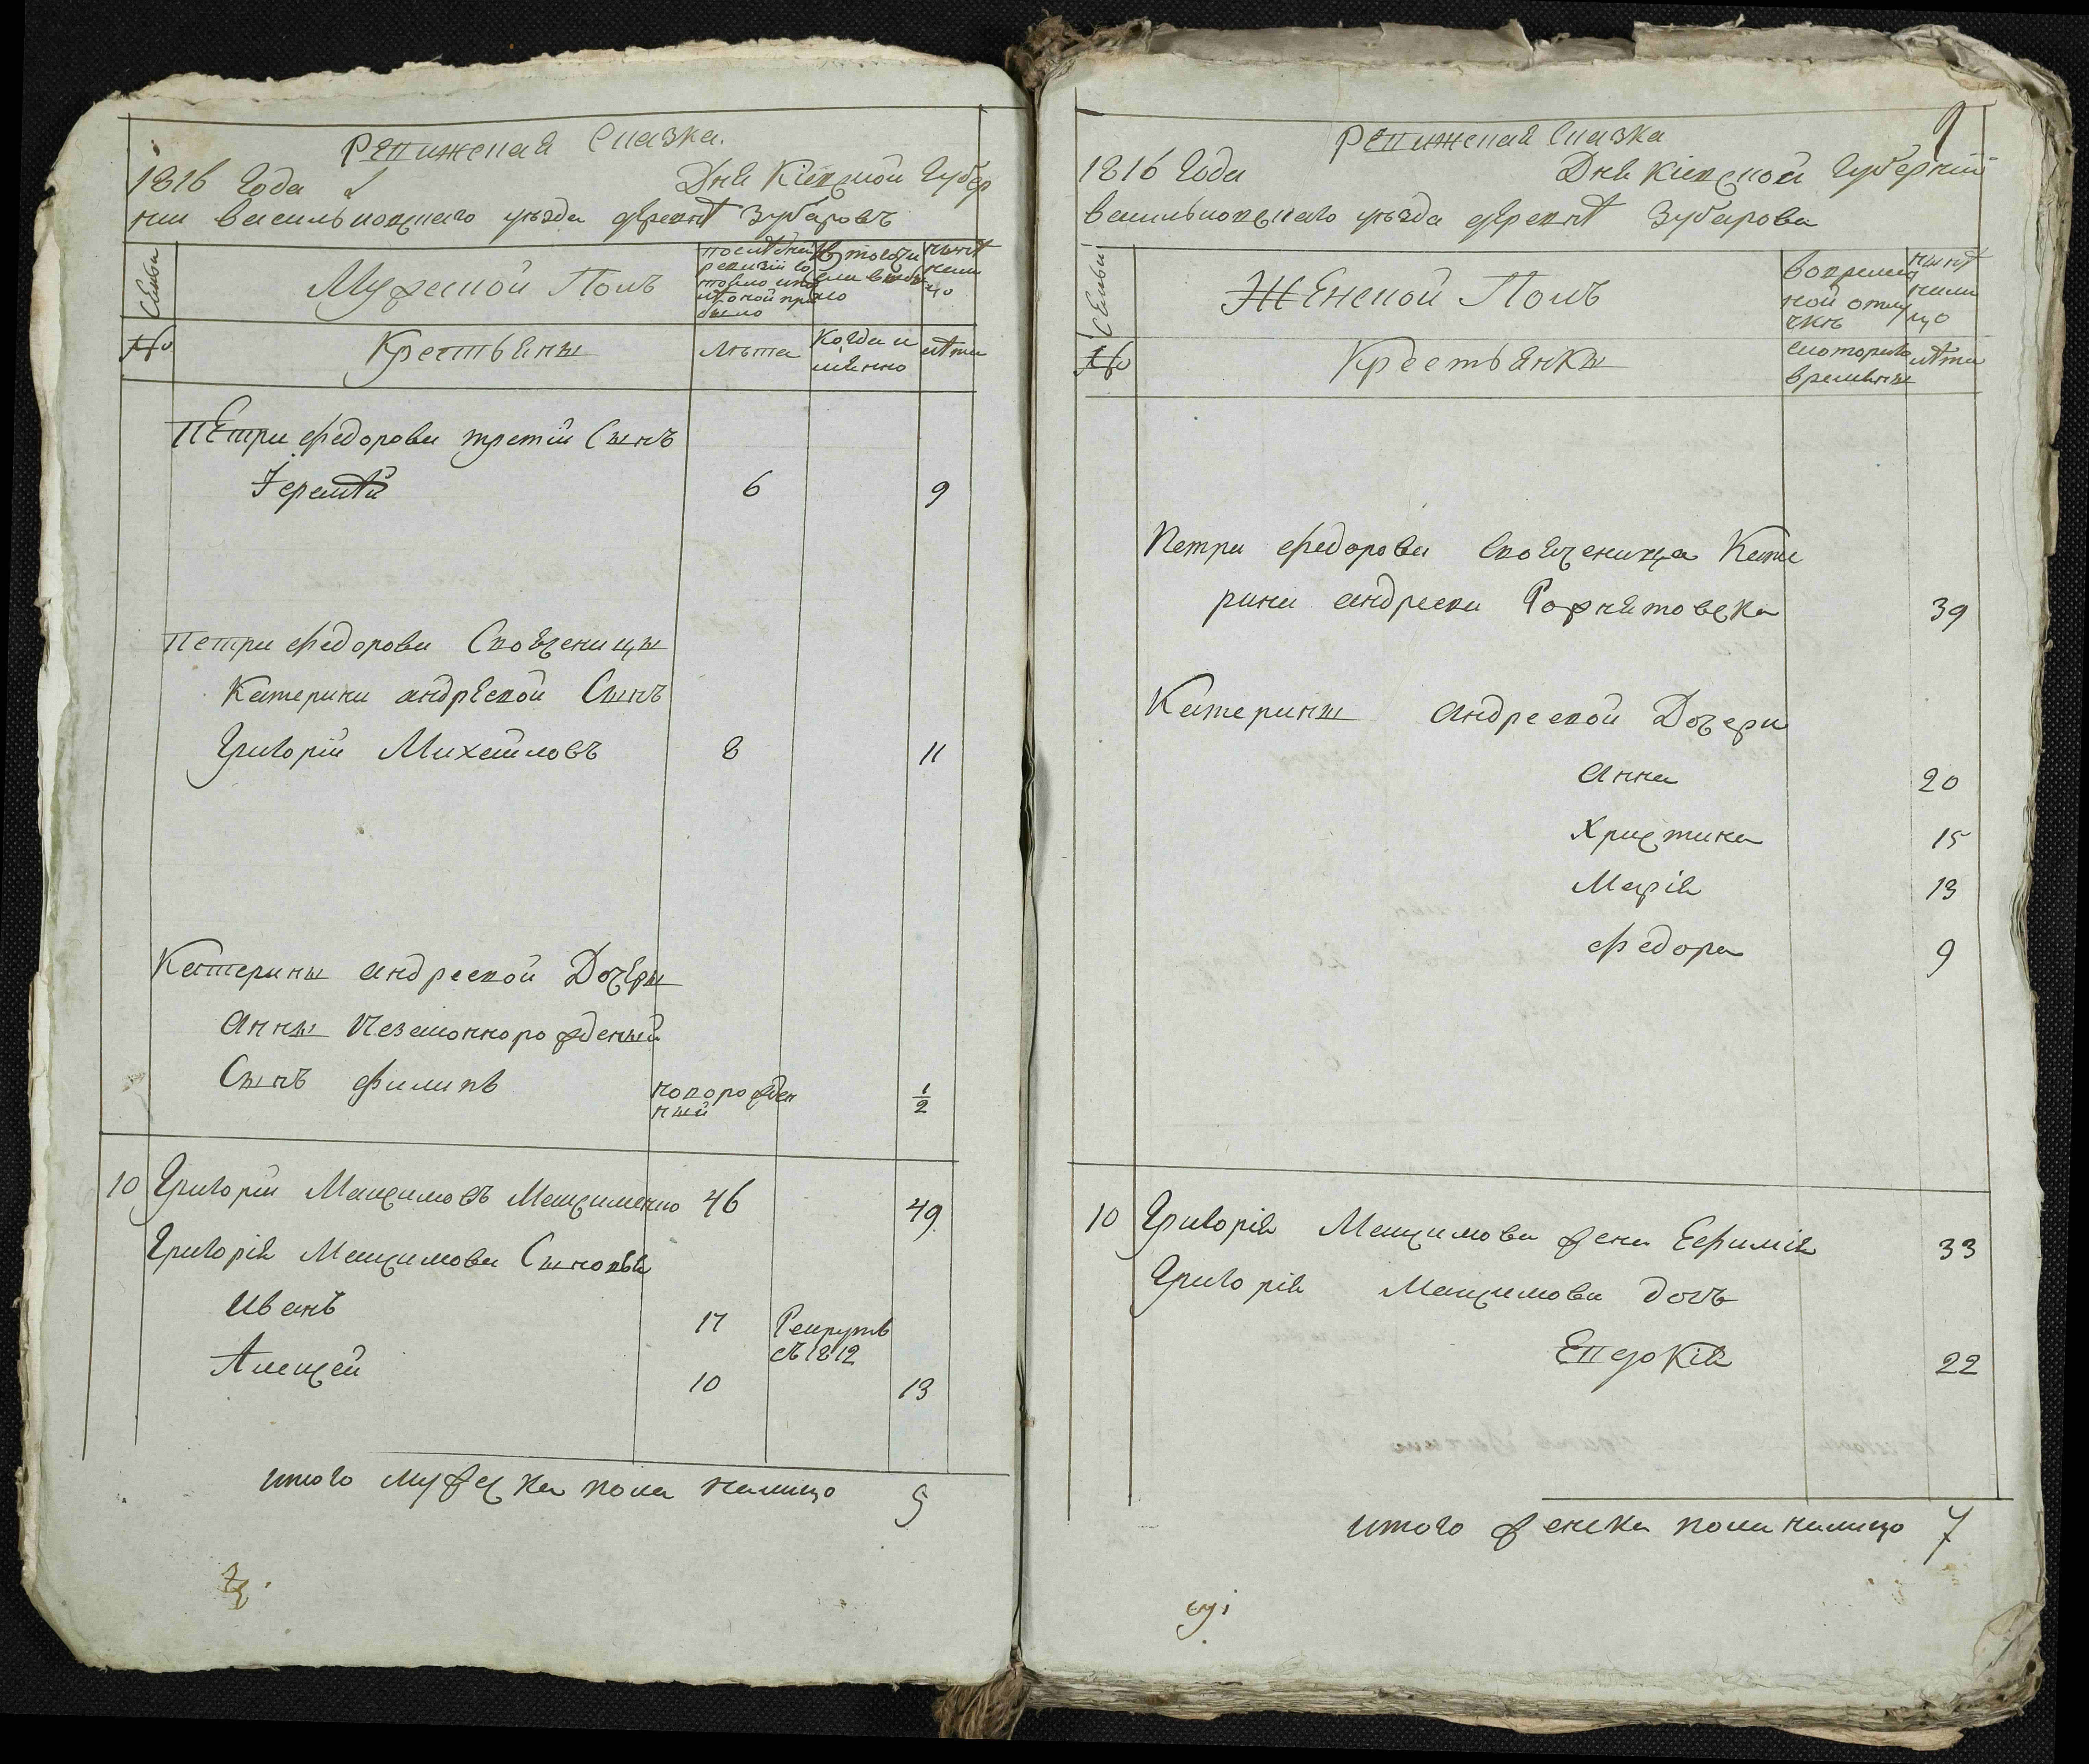 Ревижская Сказка.
1816 Года Дня Кіевской Губер
нии васильковскаго уѣзда деревнѣ Зубаровъ
Семьи
Мужеской Полъ
последней ревизіи со
стояло и по
оной при
было
Изтого чи
сла выбы
ло
нынѣ
нали
цо
№
Крестьяны
лѣта
Когда и
имянно
лѣта
Петра федорова третій Сынъ
Іеремѣй
6
9
Петра федорова Своячиницы
Катерини андреевой Сынъ
Григорій Михайловъ
8
11
Катерины андреевой Дочеры
Анны Незаконнорожденый
Сынъ филипъ
новорожден
ный
1/2
10 Григорій Максимовъ Максименко 46
49
Григорія Максимова Сыновья
Иванъ
17
Рекрутъ
съ 1812
Алексей
10
13
итого мужеска пола налицо
5
Ревижская Сказка
9
1816 Года Дня Кіевской Губерніи
васильковскаго уѣзда деревнѣ Зубарова
Семьи
Женской Полъ
вовремен
ной отлу
чкѣ
нынѣ
нали
цо
№
Крестьянки
Скотораго
времены
лѣта
Петра федорова своячиница Кате
рина андреева
39
Катерины андреевой Дочери
Анна
20
Христина
15
Марія
13
федора
9
10 Григорія Максимова жена Ефимія
33
Григорія Максимова дочь
Евдокія
22
итого женска пола налицо 7